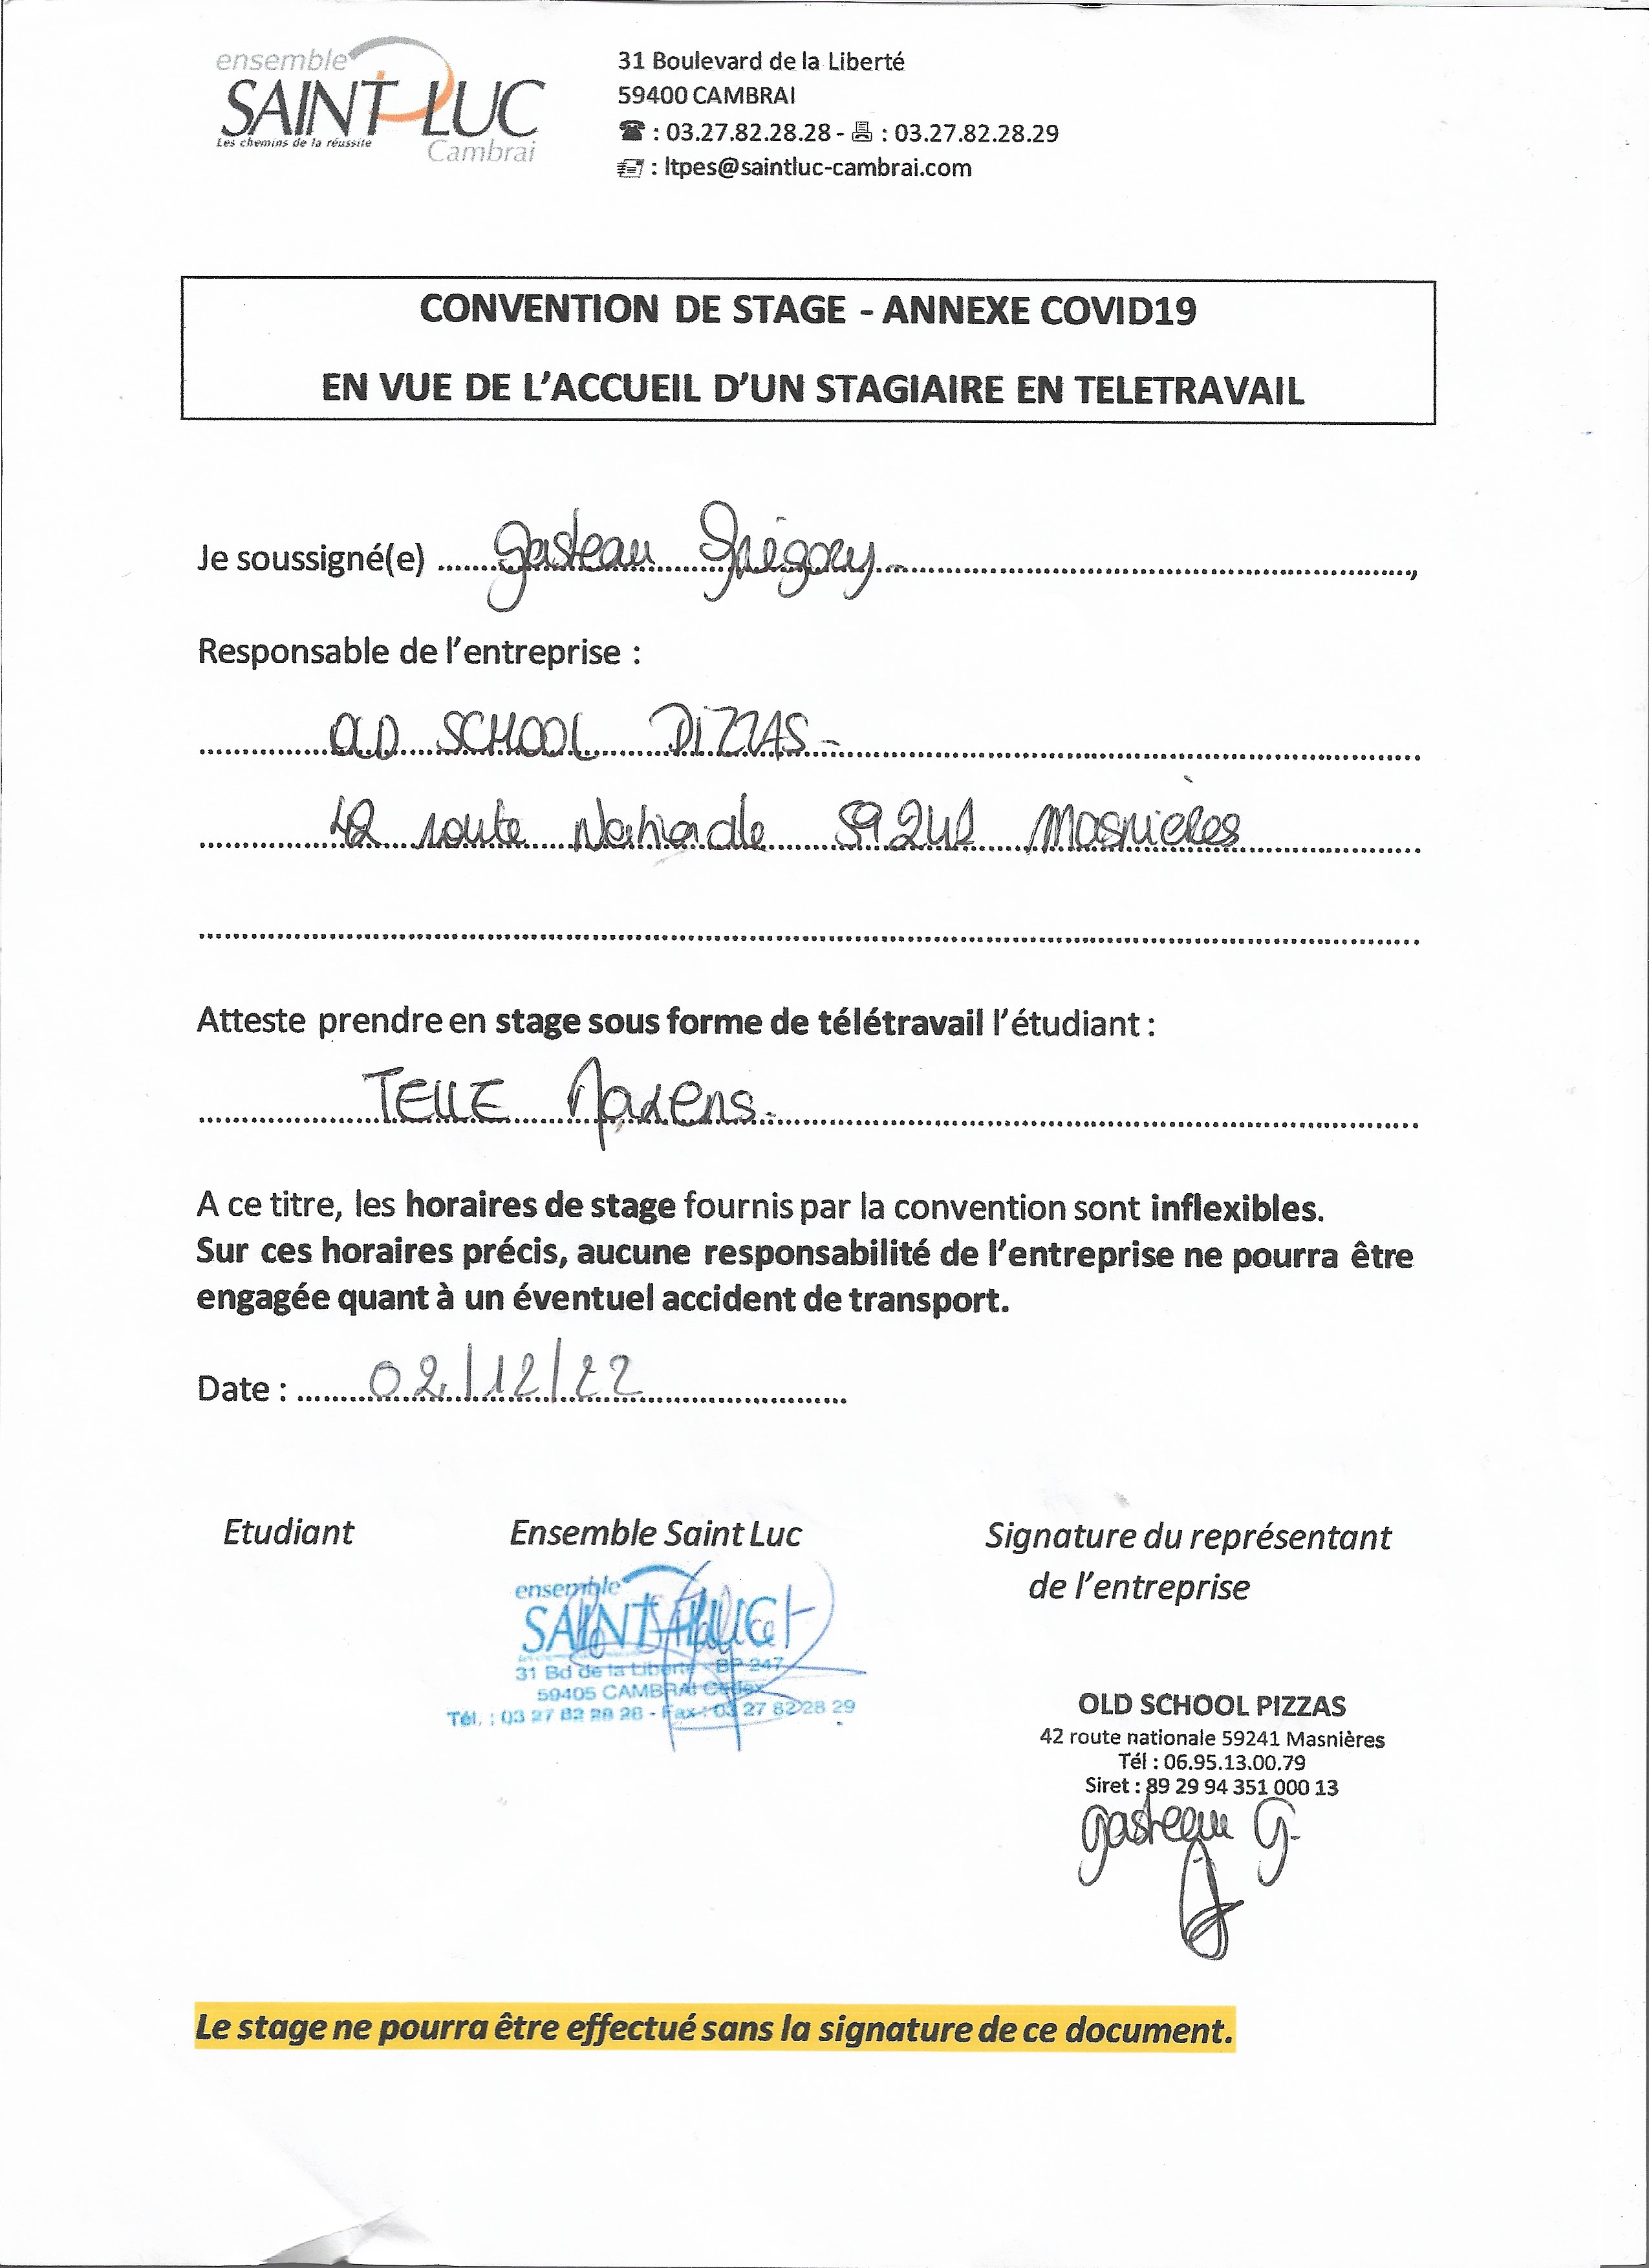 ensemble
SAINT LUC
Les chemins de la réussite
Cambrai
31 Boulevard de la Liberté
59400 CAMBRAI
: 03.27.82.28.28 - : 03.27.82.28.29
: ltpes@saintluc-cambrai.com
CONVENTION DE STAGE - ANNEXE COVID19
EN VUE DE L'ACCUEIL D'UN STAGIAIRE EN TELETRAVAIL
Je soussigné(e) Gasteau Grégory,
Responsable de l'entreprise :
OLD SCHOOL PIZZAS-
42 route Nationale 59241 Masnières
Atteste prendre en stage sous forme de télétravail l'étudiant :
TELLE Maxens.
A ce titre, les horaires de stage fournis par la convention sont inflexibles.
Sur ces horaires précis, aucune responsabilité de l'entreprise ne pourra être
engagée quant à un éventuel accident de transport.
Date : 02/12/22
Etudiant Ensemble Saint Luc Signature du représentant
de l'entreprise
ensemble
SAINT LUC
31 Bd de la Liberté - BP 247
59405 CAMBRAI Cedex
Tél. : 03 27 82 28 28 - Fax : 03 27 82 28 29
OLD SCHOOL PIZZAS
42 route nationale 59241 Masnières
Tél : 06.95.13.00.79
Siret : 89 29 94 351 000 13
gasteau G.
Le stage ne pourra être effectué sans la signature de ce document.